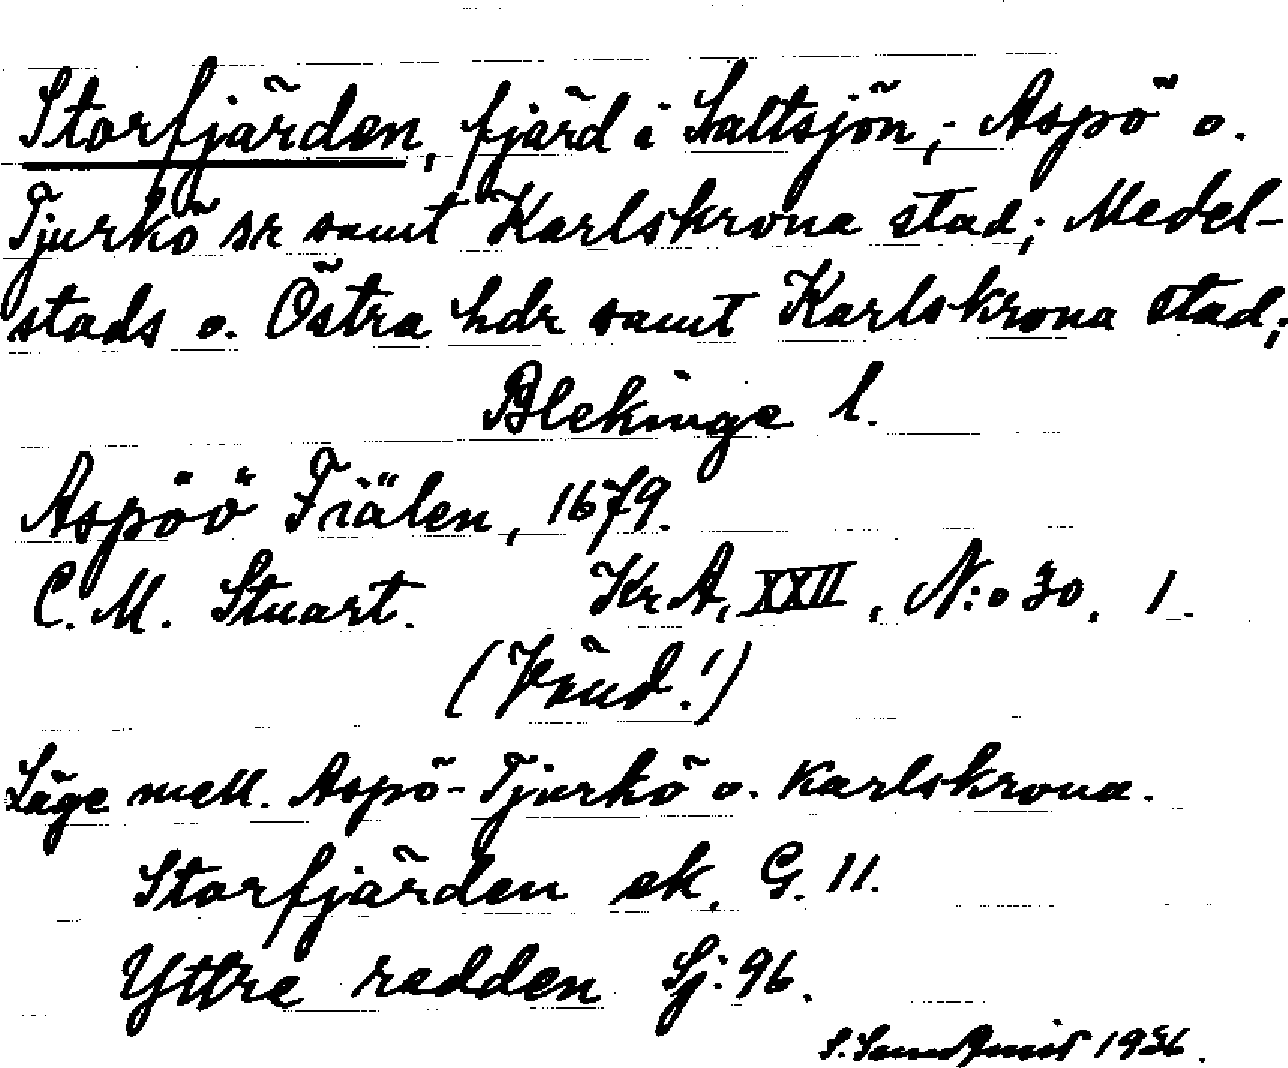 Storfjärden, fjärd i Saltsjön; Aspö o.
Tjurkö sr samt Karlskrona stad; Medel-
stads o. Östra hdr samt Karlskrona stad;
Blekinge l.
Aspöö Fiälen, 1679.
C. M. Stuart. Kr A, XXII, N:o 30. 1.
(Vänd!)
Läge mell. Aspö-Tjurkö o. Karlskrona.
Storfjärden ek. G. 11.
Yttre redden Sj: 96.
1936.